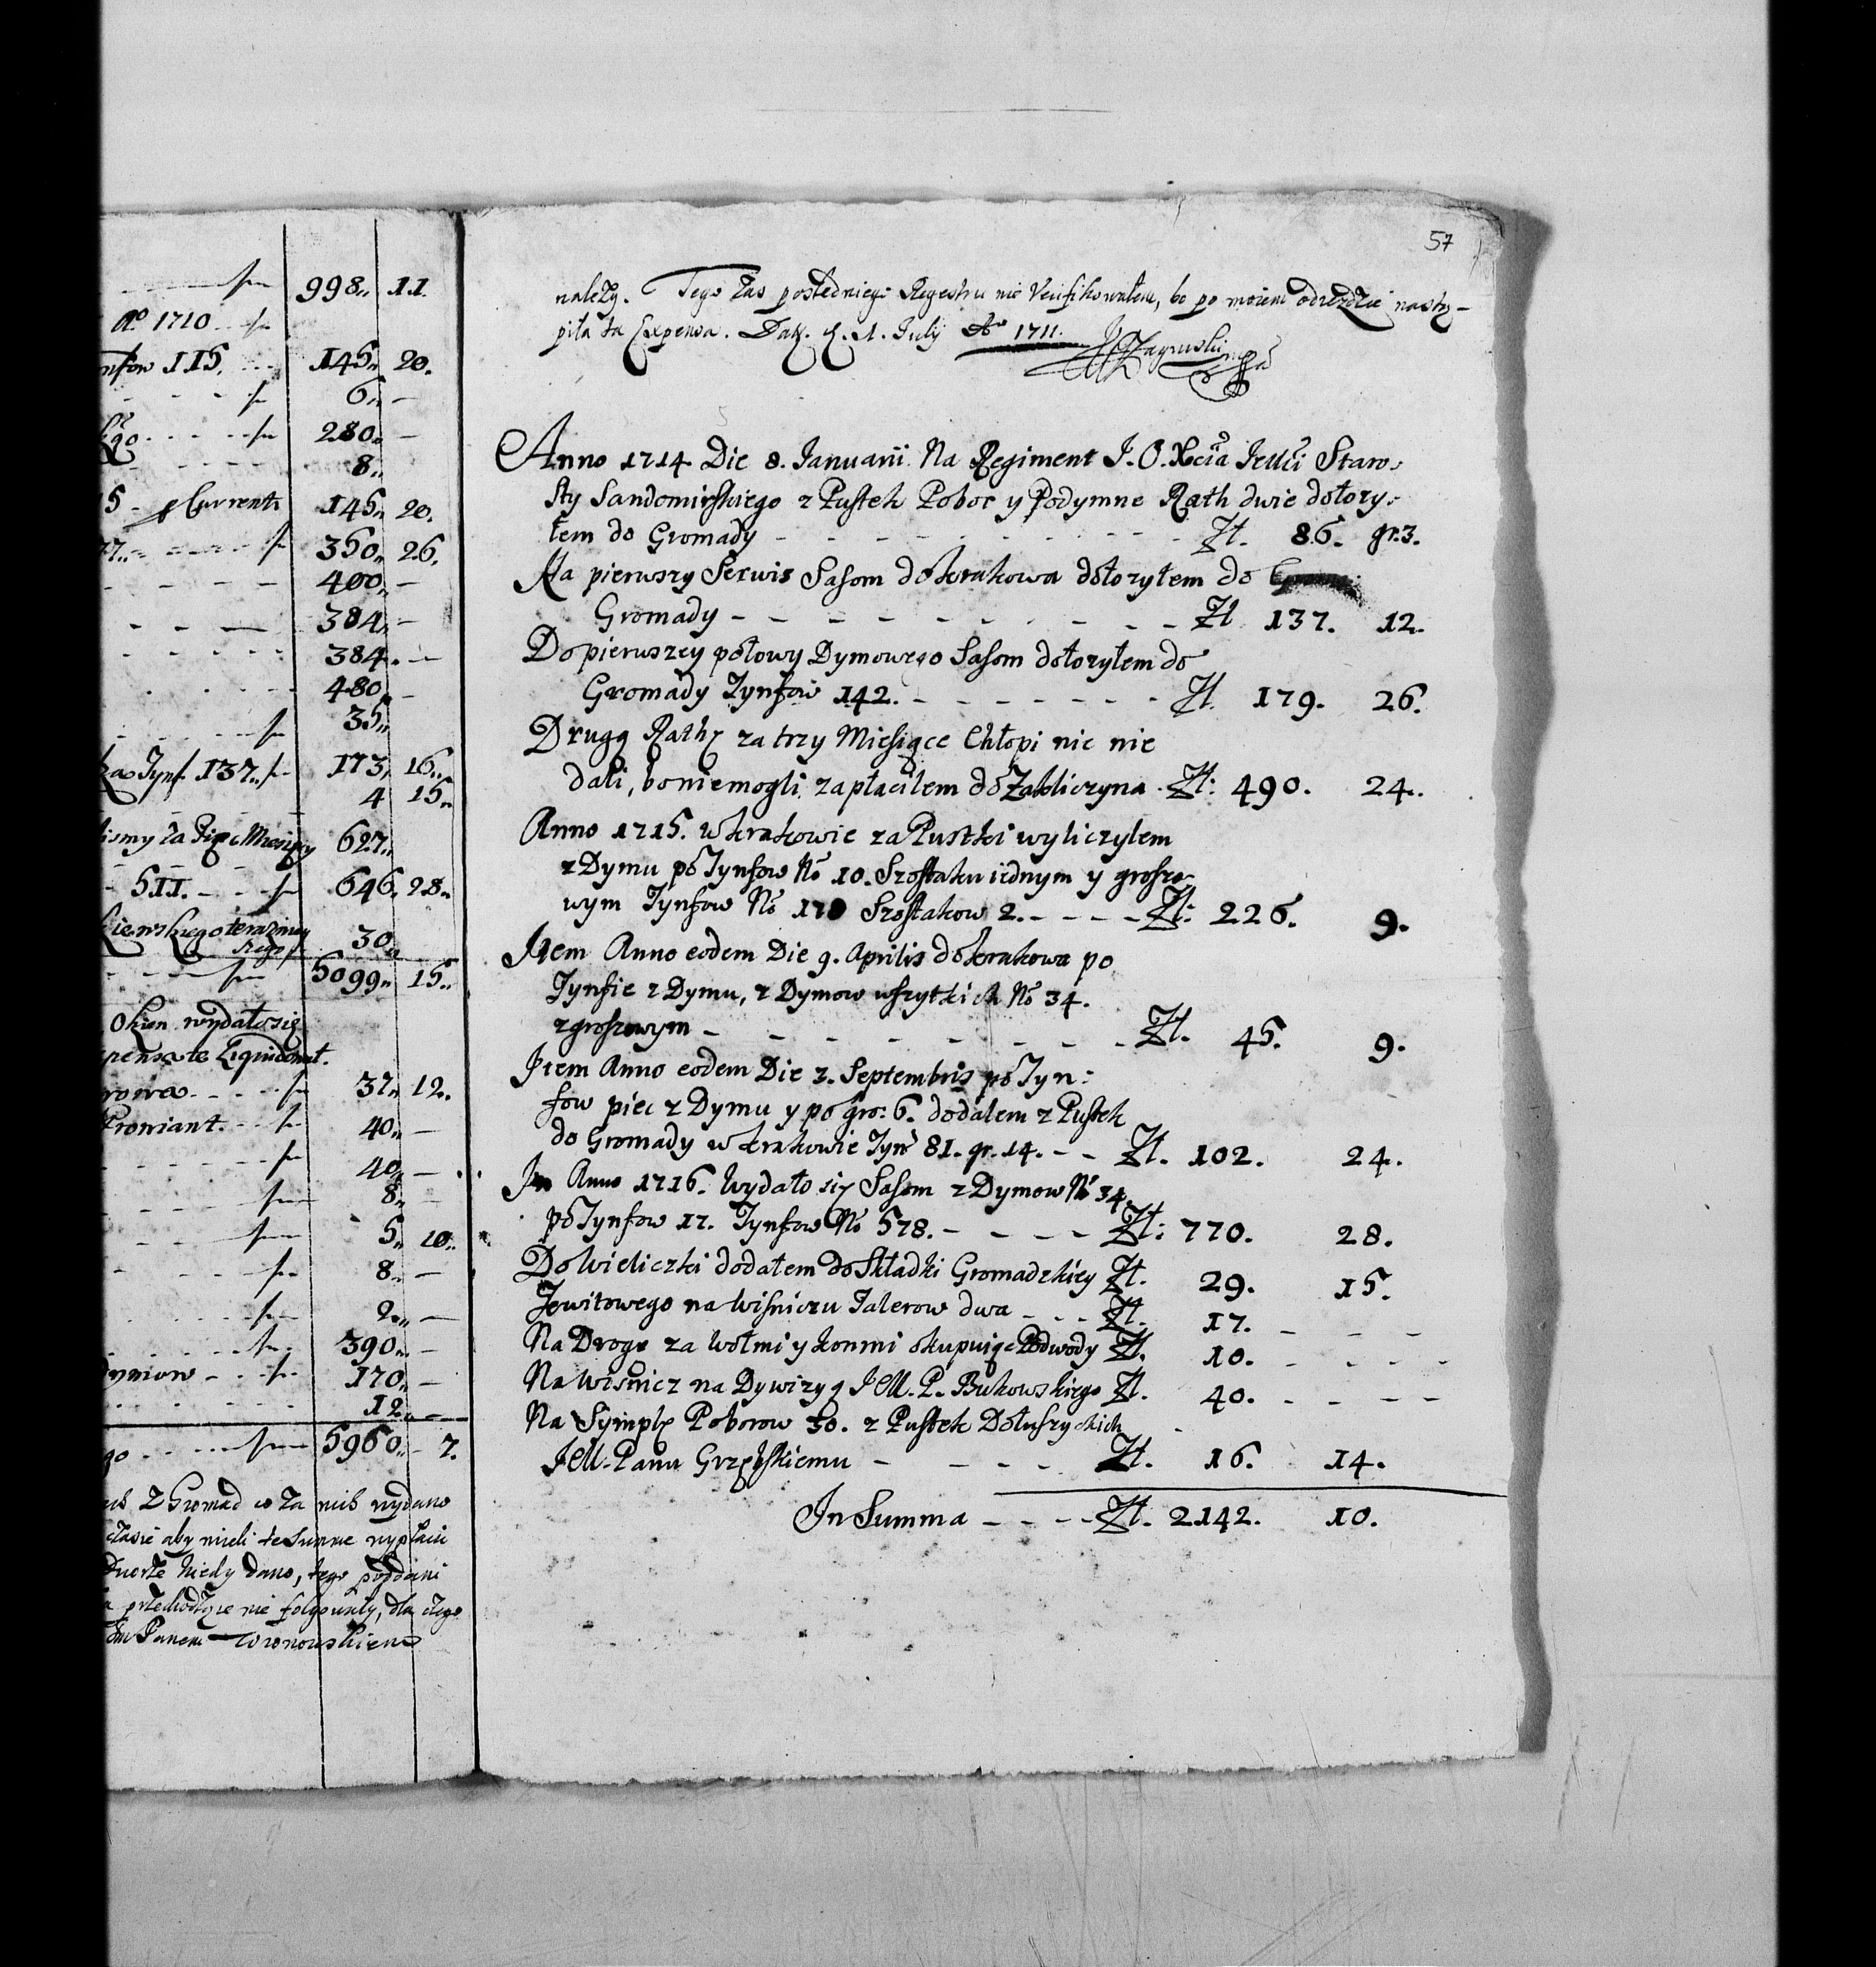 998,, 11.
Aº 1710
115. 145,, 20.
6,, –
280,, –
8,,
5 – Currenti 145,, 20.
350,, 26.
400,, –
384,, –
384,, –
480,, –
35,,
Tynf. 137,, 173,, 16,,
4 15,,
627,,
511. 646,, 28,,
30,,
5099,, 15,,
Okien wydało się
37,, 12.
Prowiant. 40,, –
40,, –
8,, –
5,, 10,,
8,, –
2,, –
390,, –
170,, –
12,, –
5960,, 7.
z Gromad co za nich wydano
aby mieli te Summe
kiedy dano, tego poddani
nie folgowały, dla czego
Panem Wronowskiem
57
należy. Tego zas posledniego Regestru nie Verifikowałem, bo po moiem odiezdzie nastę–
piła ta Expensa. Dat. d. 1. July Aº 1711.
Anno 1714 Die 8. Ianuarii. Na Regiment J. O. Xcia Jemci Staro:
sty Sandomirskiego z Pustek Pobor y Podymne Rath dwie dołozy:
łem do Gromady – – – – Zł. 86. gr. 3.
Na pierwszy Serwis Sasom do krakowa dołozyłem do
Gromady – – – – Zł. 137. 12.
Do pierwszey połowy Dymowego Sasom dołozyłem do
Gromady Tynfow 142. – – – – Zł. 179. 26.
Drugą Rathę za trzy Miesiące Chłopi nic nie
dali, bo niemogli, zapłacilem do Zakliczyna Zł: 490. 24.
Anno 1715. w krakowie za Pustki wyliczylem
z Dymu po Tynfow Nº 10. Szostaku iednym y groszo-
wym Tynfow Nº 170 Szostakow 2. – – – – Zł: 226. 9.
Item Anno eodem Die 9. Aprilis do krakowa po
Tynfie z Dymu, z Dymow wszytkich Nº 34.
z groszowym – – – – Zł. 45. 9.
Item Anno eodem Die 3. Septembris po Tyn:
fow piec z Dymu y po gro: 6. dodalem z Pustek
do Gromady w krakowie Tyn 81. gr. 14. – – Zł. 102. 24.
In Anno 1716. Wydało się Sasom z Dymow Nº 34.
po Tynfow 17. Tynfow Nº 578. – – – – Zł: 770. 28.
Do Wieliczki dodałem do Składki Gromadzkiey Zł. 29. 15.
Jewitowego na Wisniczu Talerow dwa – – – Zł. 17. – – –
Na Drogę za Wołmi y konmi okupuiąc Podwody Zł. 10. – – – –
Na Wisnicz na Dywizyą JM. P. Bukowskiego Zł. 40. – – – –
Na Symplę Poborow 30. z Pustek Dołuszyckich
JM. Panu Grzębskiemu – – – – Zł. 16. 14.
In Summa – – – – Zł. 2142. 10.